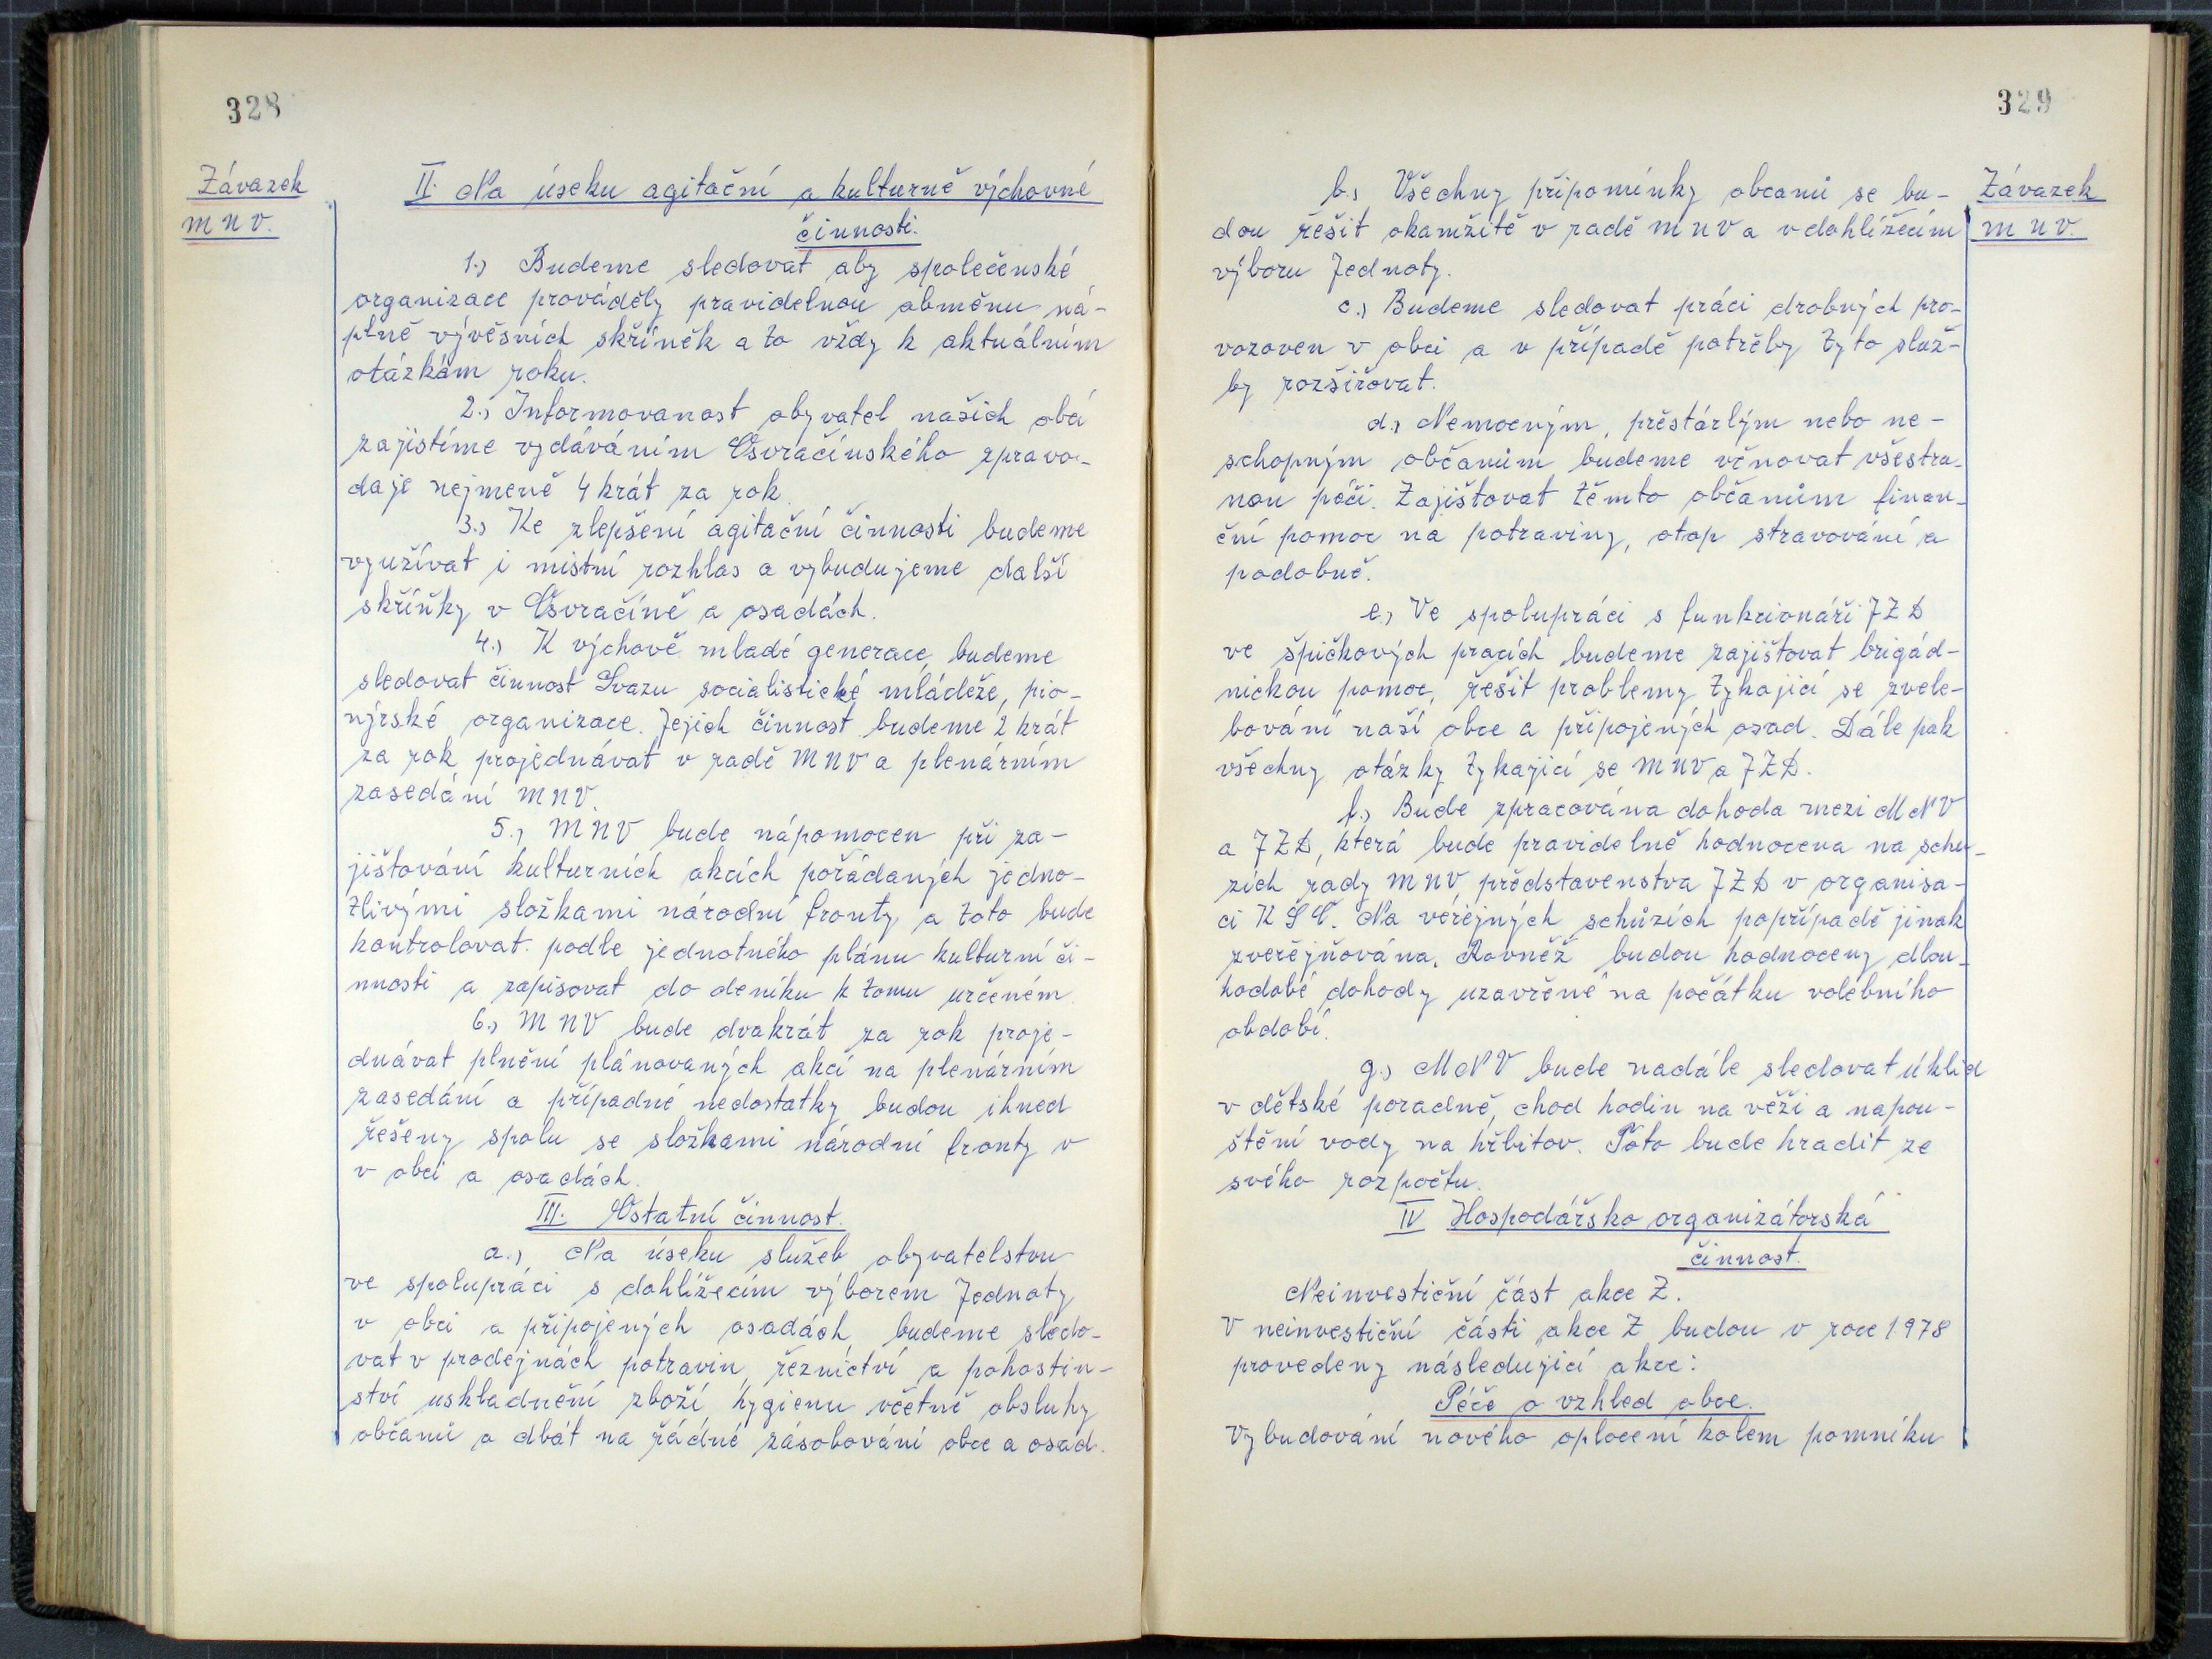 328
Závazek
MNV.
II. Na úseku agitační a kulturně výchovné
činnosti.
1.) Budeme sledovat aby společenské
organizace prováděly pravidelnou obměnu ná-
plně vývěsních skříněk a to vždy k aktuálním
otázkám roku.
2.) Informovanost obyvatel našich obcí
zajistíme vydáváním Osvračínského zpravo-
daje nejmeně 4 krát za rok.
3.) Ke zlepšení agitační činnosti budeme
využívat i mistní rozhlas a vybudujeme další
skříňky v Osvračíně a osadách.
4.) K výchově mladé generace budeme
sledovat činnost Svazu socialistické mládeže, pio-
nýrské organizace. Jejich činnost budeme 2 krát
za rok projednávat v radě MNV a plenárním
zasedání MNV.
5.) MNV bude nápomocen při za-
jištování kulturních akcích pořádaných jedno-
tlivými složkami národní fronty a toto bude
kontrolovat podle jednotného plánu kulturní či-
nnosti a zapisovat do deníku k tomu určeném
6.) MNV bude dvakrát za rok proje-
dnávat plnění plánovaných akcí na plenárním
zasedání a případné nedostatky budou ihned
řešeny spolu se složkami národní fronty v
v obci a osadách.
III. Ostatní činnost.
a.) Na úseku služeb obyvatelstvu
ve spolupráci s dohlížecím výborem Jednoty
v obci a připojených osadách budeme sledo-
vat v prodejnách potravin, řeznictví a pohostin-
ství uskladnění zboží hygienu včetně obsluhy
občanů a dbát na řádné zásobování obce a osad.
329
Závazek
MNV.
b.) Všechny připomínky obcanů se bu-
dou řešit okamžitě v radě MNV a v dohlížecím
výboru Jednoty.
c.) Budeme sledovat práci drobných pro-
vozoven v obci a v případě potřeby tyto služ-
by rozšiřovat.
d.) Nemocným, přestárlým nebo ne-
schopným občanům budeme věnovat všestra-
nou péči. Zajištovat těmto občanům finan-
ční pomoc na potraviny, otop stravování a
podobně.
e.) Ve spolupráci s funkcionáři JZD
ve špičkových pracích budeme zajištovat brigád-
nickou pomoc, řešit problemy tykající se zvele-
bování naší obce a připojených osad. Dále pak
všechny otázky tykající se MNV a JZD.
f.) Bude zpracována dohoda mezi MNV
a JZD, která bude pravidelně hodnocena na schu-
zích rady MNV, představenstva JZD v organisa-
ci KSČ. Na veřejných schůzích popřípadě jinak
zveřejňována. Rovněž budou hodnoceny dlou-
hodobé dohody uzavřené na počátku volebního
období.
g.) MNV bude nadále sledovat úklid
v dětské poradně, chod hodin na věži a napou-
štění vody na hřbitov. Toto bude hradit ze
svého rozpočtu.
IV Hospodářsko organizátorská
činnost.
Neinvestiční část akce Z.
V neinvestiční části akce Z budou v roce 1978
provedeny následující akce:
Péče o vzhled obce.
Vybudování nového oplocení kolem pomníku